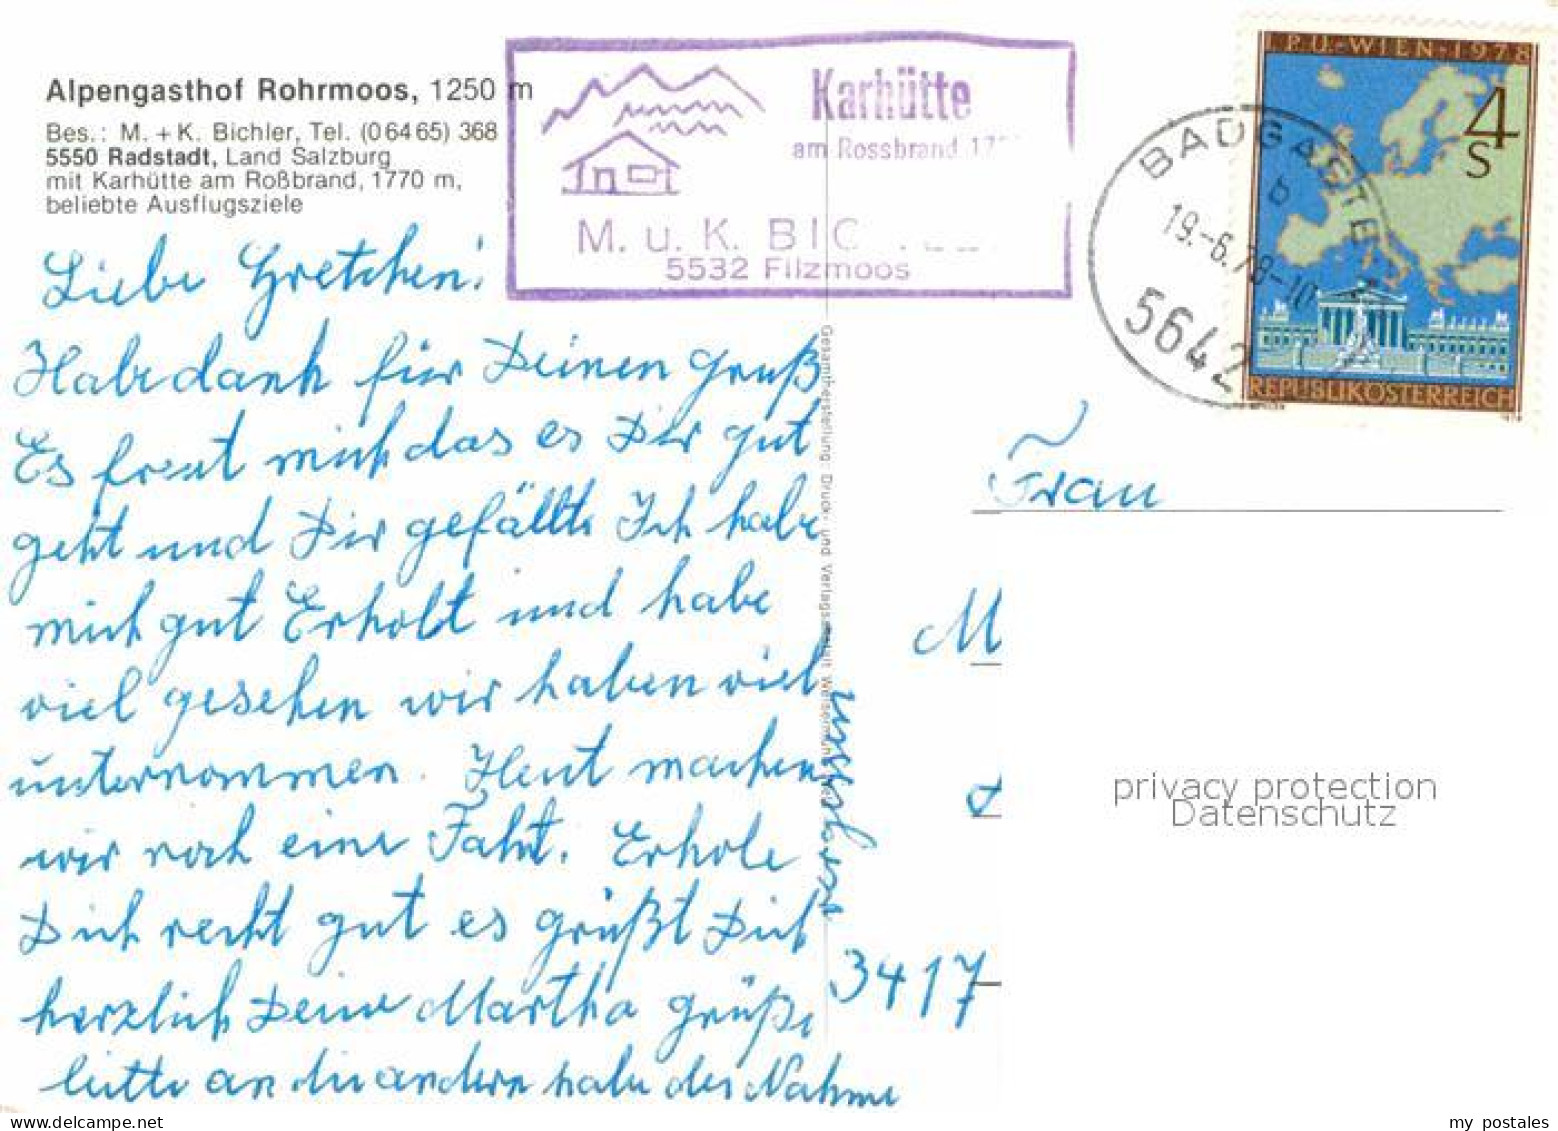 Alpengasthof Rohrmoos, 1250 m
Bes.: M. + K. Bichler, Tel. (06465) 368
5550 Radstadt, Land Salzburg
mit Karhütte am Roßbrand, 1770 m,
beliebte Ausflugsziele
Karhütte
am Rossbrand 17
M. u. K. BIC
5532 Filzmoos
BADGASTEIN
b
19.-6.78-10
5642
I.P.U.-WIEN-1978
4
S
REPUBLIK ÖSTERREICH
Liebe Gretchen!
Habe dank für Deinen Gruß
Es freut mich das es Dir gut
geht und Dir gefällt. Ich habe
mich gut Erholt und habe
viel gesehen wir haben viel
unternommen. Heut machen
wir noch eine Faht. Erhole
Dich recht gut es grüßt Dich
herzlich Deine Martha grüße
bitte an die andern habe der Nahme
Gesamtherstellung: Druck- und Verlagsanstalt
Frau
M
3417
privacy protection
Datenschutz
my postales